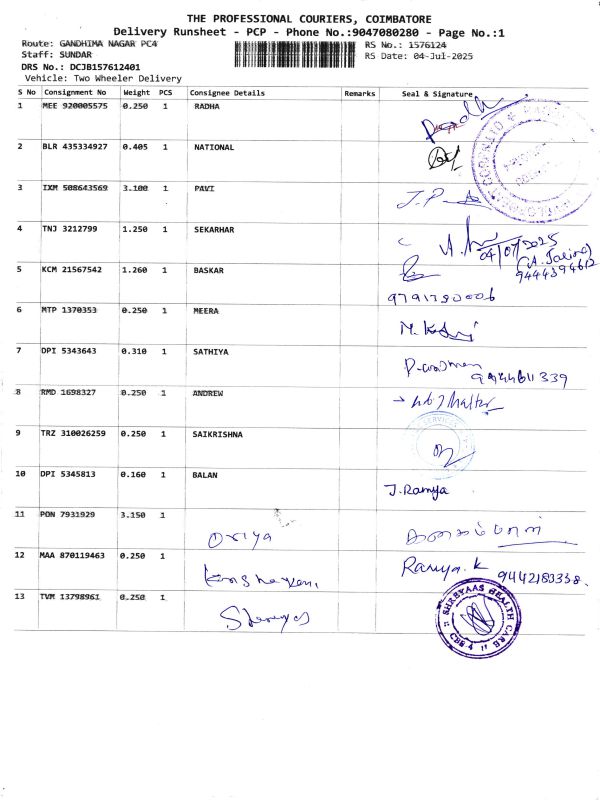 THE PROFESSIONAL COURIERS, COIMBATORE
Delivery Runsheet - PCP - Phone No.:9047080280 - Page No.:1
Route: GANDHIMA NAGAR PC4 RS No.: 1576124
Staff: SUNDAR RS Date: 04-Jul-2025
DRS No.: DCJB157612401
Vehicle: Two Wheeler Delivery
S No Consignment No Weight PCS Consignee Details Remarks Seal & Signature
1 MEE 920005575 0.250 1 RADHA
2 BLR 435334927 0.405 1 NATIONAL
3 IXM 508643569 3.100 1 PAVI J.P
4 TNJ 3212799 1.250 1 SEKARHAR 04/07/2025
5 KCM 21567542 1.260 1 BASKAR
9791780006
6 MTP 1370353 0.250 1 MEERA
7 DPI 5343643 0.310 1 SATHIYA
8 RMD 1698327 0.250 1 ANDREW
9 TRZ 310026259 0.250 1 SAIKRISHNA
10 DPI 5345813 0.160 1 BALAN J.Ramya
11 PON 7931929 3.150 1 Oriya
12 MAA 870119463 0.250 1 Ramya.K
13 TVM 13798961 0.250 1
SHREYAAS HEALTH CARE
CBE 4